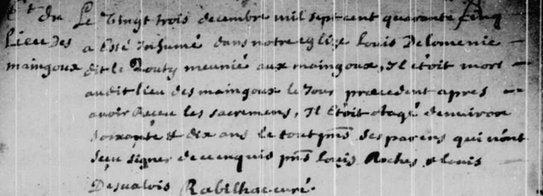 Et du Le Vingt trois decembre mil sept cent quarante Cinq
Lieu des a Esté Inhumé dans notre eglize louis Delomenie
maingoux dit le Routy meunié aux maingoux, Il étoit mort
audit lieu des maingoux le Jour præcedent apres
avoir Receu les sacremens, Il Etoit agé denviron
soixante & dix ans le tout pnts ses parens qui nont
sçeu signer de ce enquis pnts louis Roches & louis
Desualois Rabilhac curé.